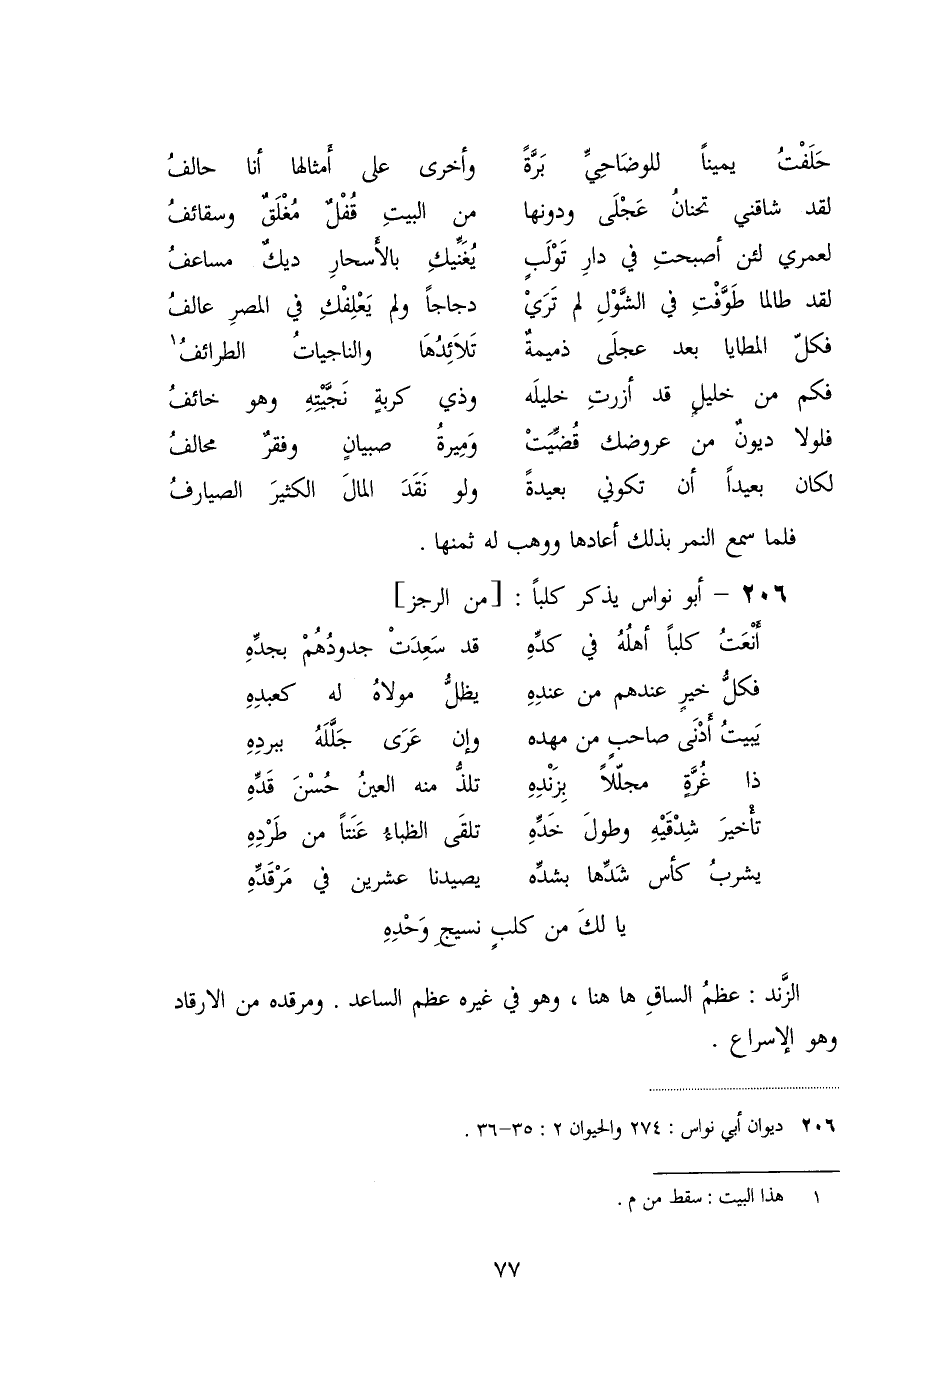 حَلَفْتُ يميناً للوضَاحِيِّ بَرَّةً وأخرى على أَمثالها أنا حالفُ
لقد شاقني تحنانُ عَجْلَى ودونها من البيتِ قُفْلٌ مُغْلَقٌ وسقائفُ
لعمري لئن أصبحتِ في دارِ تَوْلَبٍ يُغَنِّيكِ بالأَسحارِ ديكٌ مساعفُ
لقد طالما طَوَّفْتِ في الشَّوْلِ لم تَرَيْ دجاجاً ولم يَعْلِفْكِ في المصرِ عالفُ
فكلّ المطايا بعد عجلَى ذميمةٌ تَلاَئِدُهَا والناجياتُ الطرائفُ١
فكم من خليلٍ قد أزرتِ خليلَه وذي كربةٍ نَجَّيْتِهِ وهو خائفُ
فلولا ديونٌ من عروضك قُضِّيَتْ وَمِيرةُ صبيانٍ وفقرٌ محالفُ
لكان بعيداً أن تكوني بعيدةً ولو نَقَدَ المالَ الكثيرَ الصيارفُ
فلما سمع النمر بذلك أعادها ووهب له ثمنها .
٢٠٦ – أبو نواس يذكر كلباً : [من الرجز]
أَنْعَتُ كلباً أهلُهُ في كدِّهِ قد سَعِدَتْ جدودُهُمْ بجدِّهِ
فكلُّ خيرٍ عندهم من عندِهِ يظلُّ مولاهُ له كعبدِهِ
يَبيتُ أَدْنَى صاحبٍ من مهده وإن عَرَى جَلَّلَهُ ببردِهِ
ذا غُرَّةٍ مجلّلاً بِزَنْدِهِ تلذُّ منه العينُ حُسْنَ قَدِّهِ
تأْخيرَ شِدْقَيْهِ وطولَ خَدِّهِ تلقَى الظباءُ عَنَتاً من طَرْدِهِ
يشربُ كأس شَدِّها بشدِّه يصيدنا عشرين في مَرْقَدِّهِ
يا لكَ من كلبٍ نسيجِ وَحْدِهِ
الزَّند : عظمُ الساقِ ها هنا ، وهو في غيره عظم الساعد . ومرقده من الارقاد
وهو الإسراع .
٢٠٦ ديوان أبي نواس : ٢٧٤ والحيوان ٢ : ٣٥–٣٦ .
١ هذا البيت : سقط من م .
٧٧